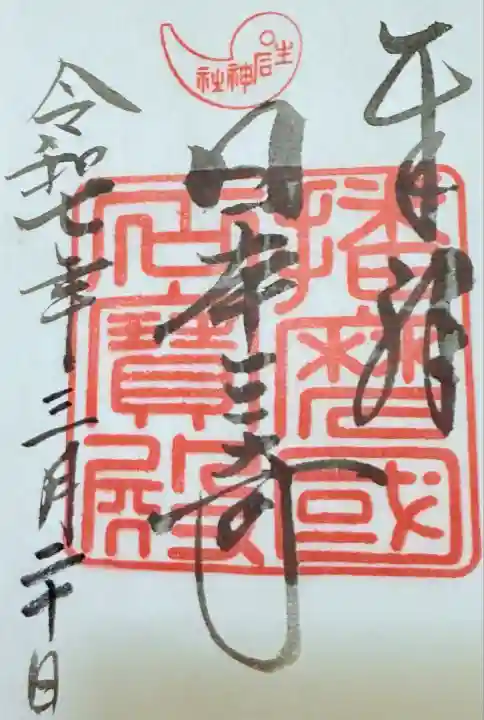 奉拝
日本三奇
令和七年三月二十日
播磨國
石寶殿
生石神社